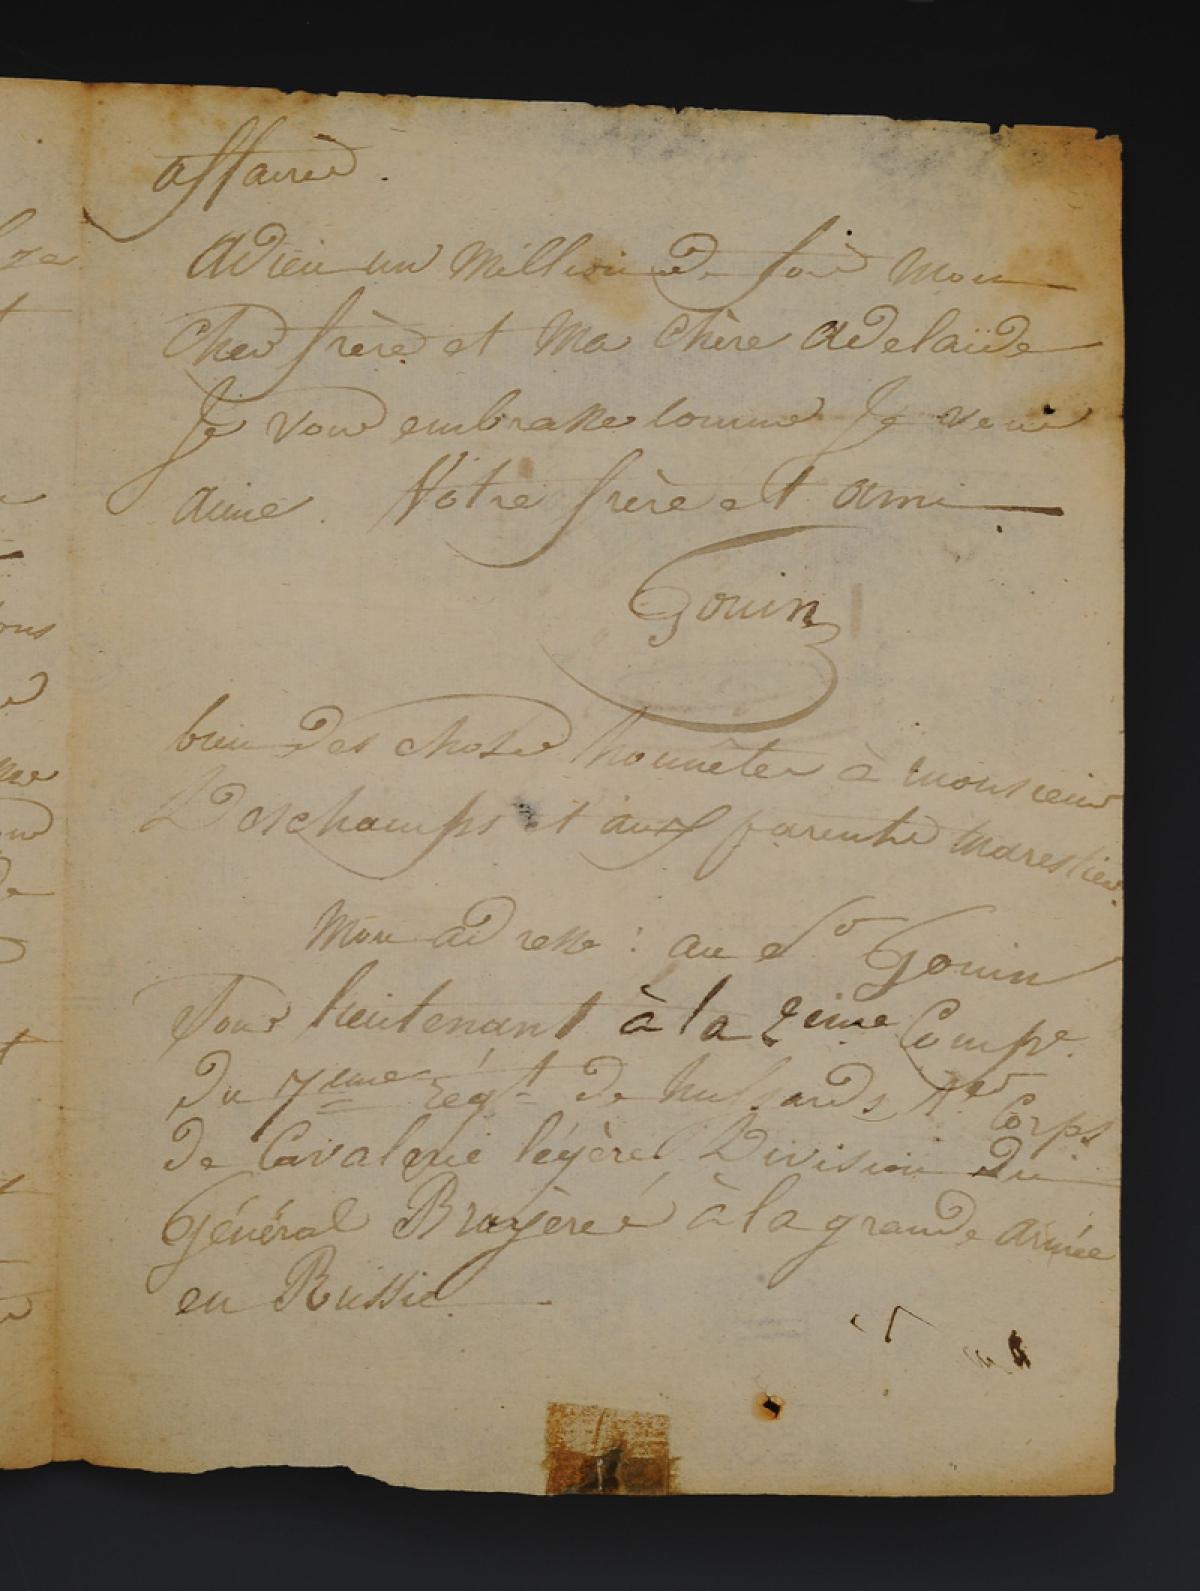 affaires.
Adieu un million de fois mon
cher frère et ma chère adelaïde
Je vous embrasse comme Je vous
aime. Votre frère et ami
Gouin
bien des choses honnêtes à monsieur
Deschamps et aux parents
Mon adresse : au Sr Gouin
Sous lieutenant à la 2eime Compe.
du 7eme régt de hussards, 1er Corps
de Cavalerie légère Division du
Général Bruyère à la grande armée
en Russie